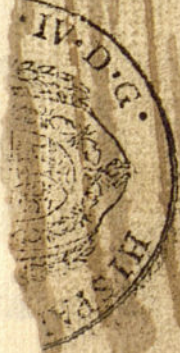 ·IV·D·G·
HISPA